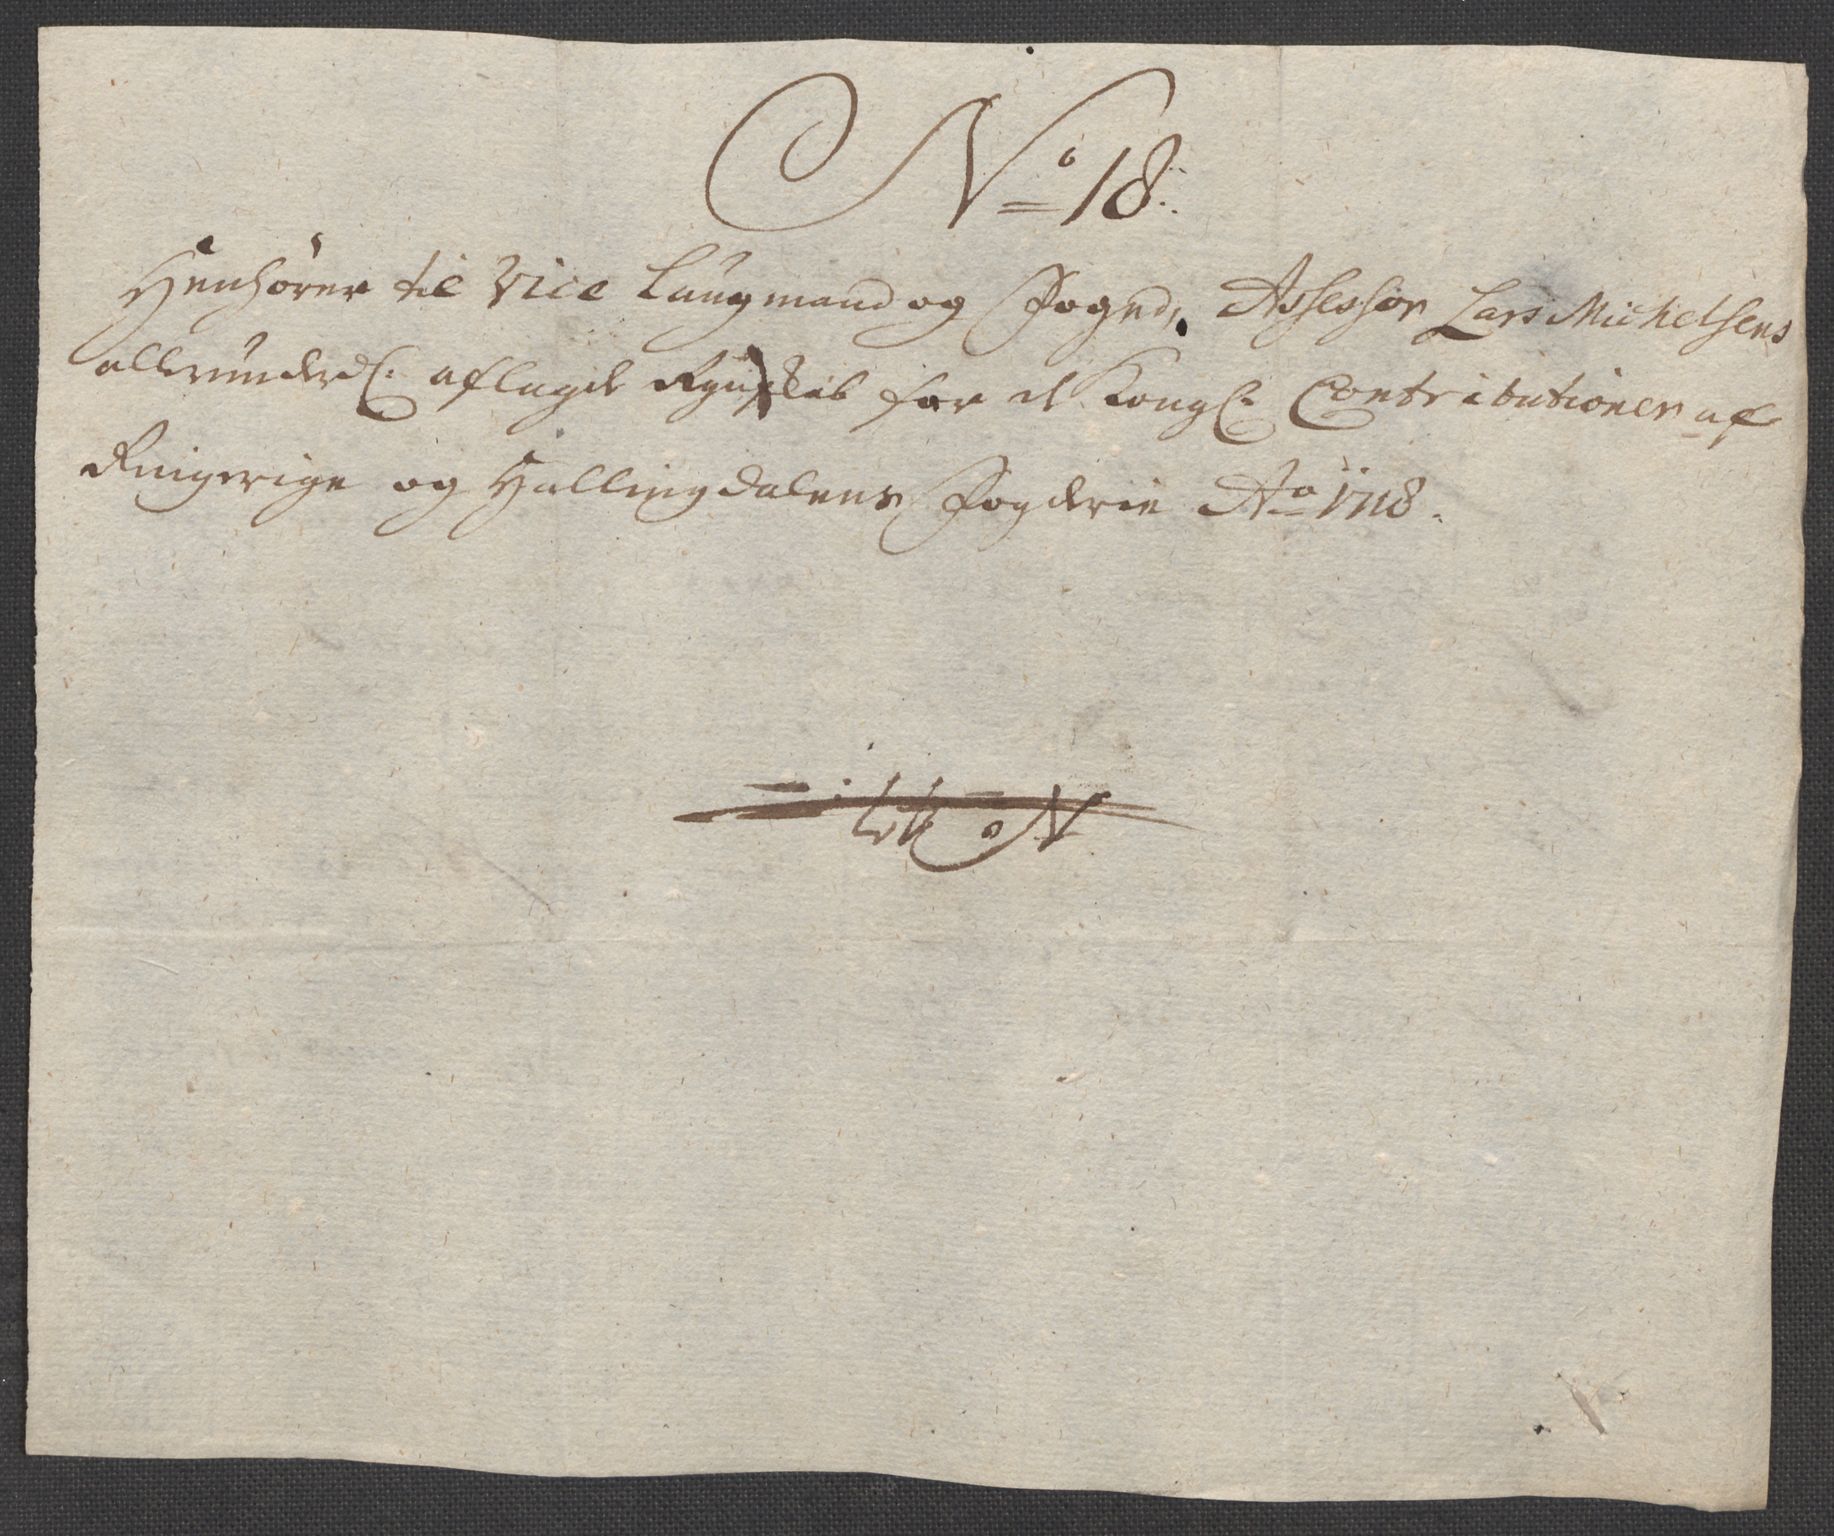 No 18.
Henhörer til Vice Laugmand og Foged, Assessor Lars Michelsens
allerunderd: aflagde Regnskab for de Kongl: Contributioner af
Ringerige og Hallingdalens Fogderie Ao 1718.
No